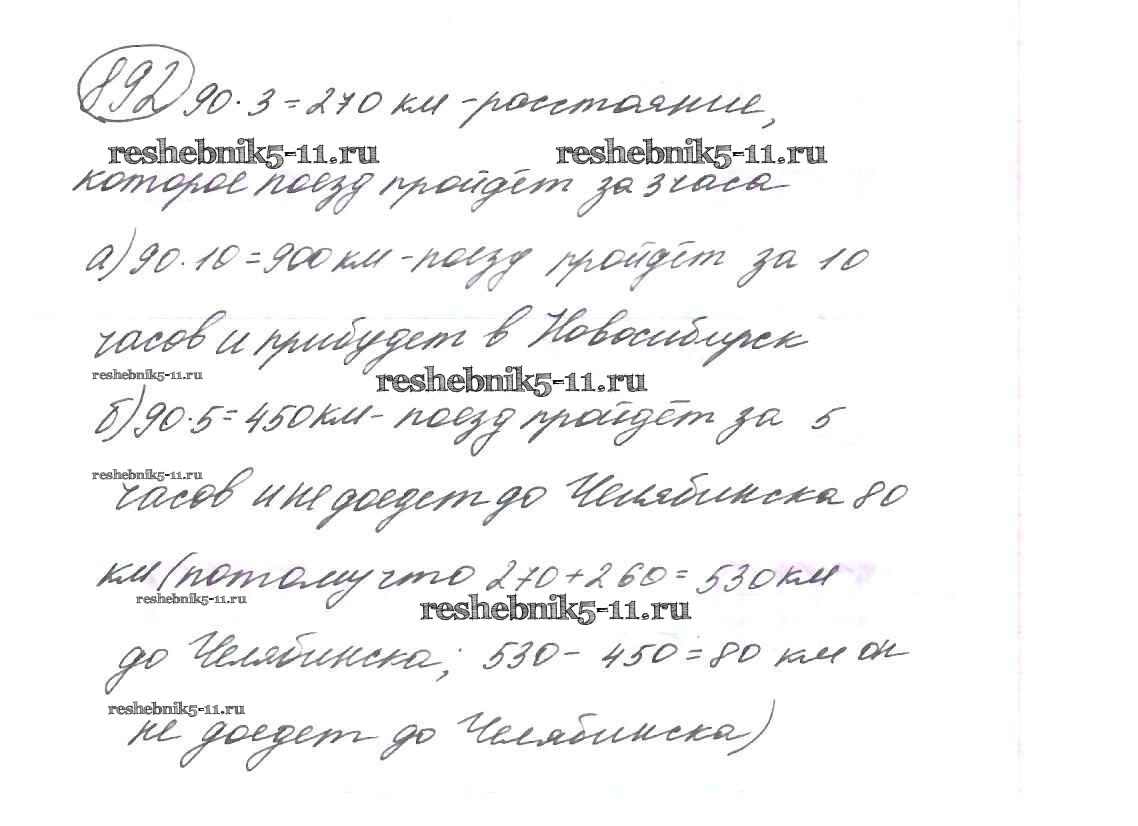 892 90·3=270 км - расстояние,
reshebnik5-11.ru reshebnik5-11.ru
которое поезд пройдёт за 3 часа
а) 90·10=900 км - поезд пройдёт за 10
часов и прибудет в Новосибирск
reshebnik5-11.ru reshebnik5-11.ru
б) 90·5=450 км - поезд пройдёт за 5
reshebnik5-11.ru
часов и не доедет до Челябинска 80
км (потому что 270+260=530 км
reshebnik5-11.ru reshebnik5-11.ru
до Челябинска; 530-450=80 км он
reshebnik5-11.ru
не доедет до Челябинска)